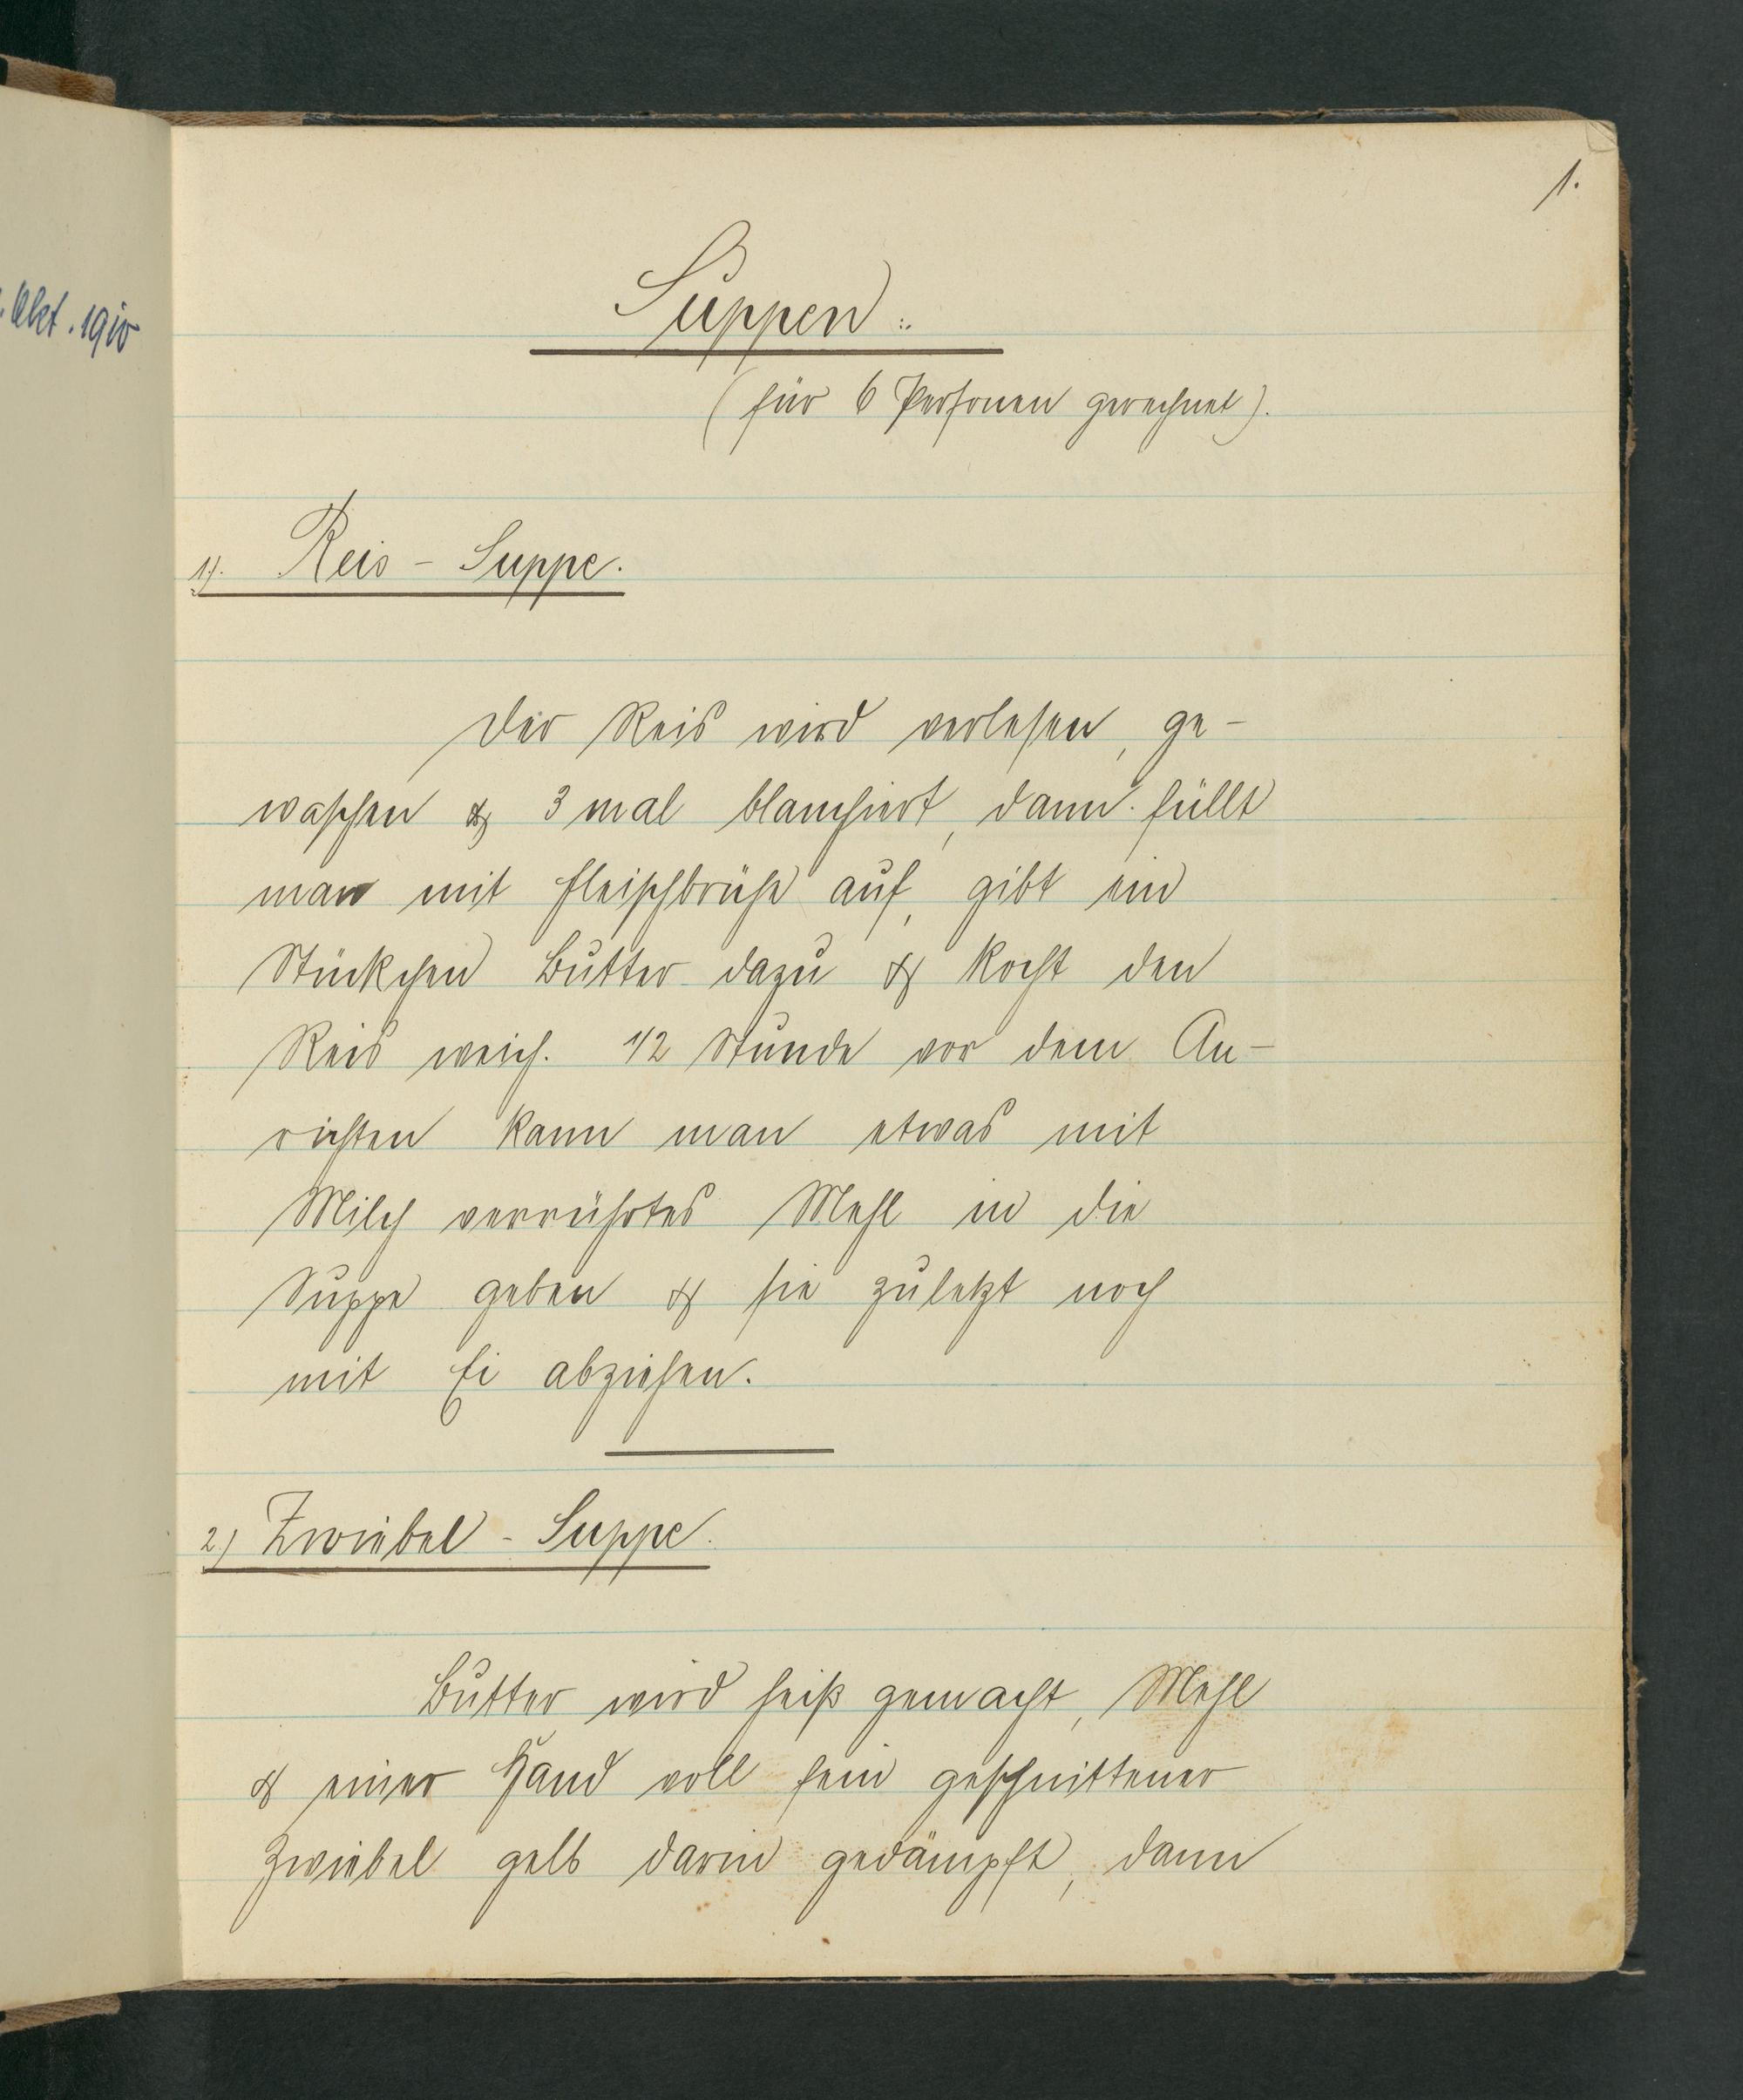 . Okt. 1910
1.
Suppen:
(für 6 Personen gerechnet).
1). Reis - Suppe.
Der Reis wird verlesen, ge-
waschen & 3 mal blanchiert, dann füllt
man mit Fleischbrühe auf, gibt ein
Stückchen Butter dazu & kocht den
Reis weich. 1/2 Stunde vor dem An-
richten kann man etwas mit
Milch verrührtes Mehl in die
Suppe geben & sie zuletzt noch
mit Ei abziehen.
2) Zwiebel - Suppe.
Butter wird heiß gemacht, Mehl
& einer Hand voll fein geschnittener
Zwiebel gelb darin gedämpft, dann